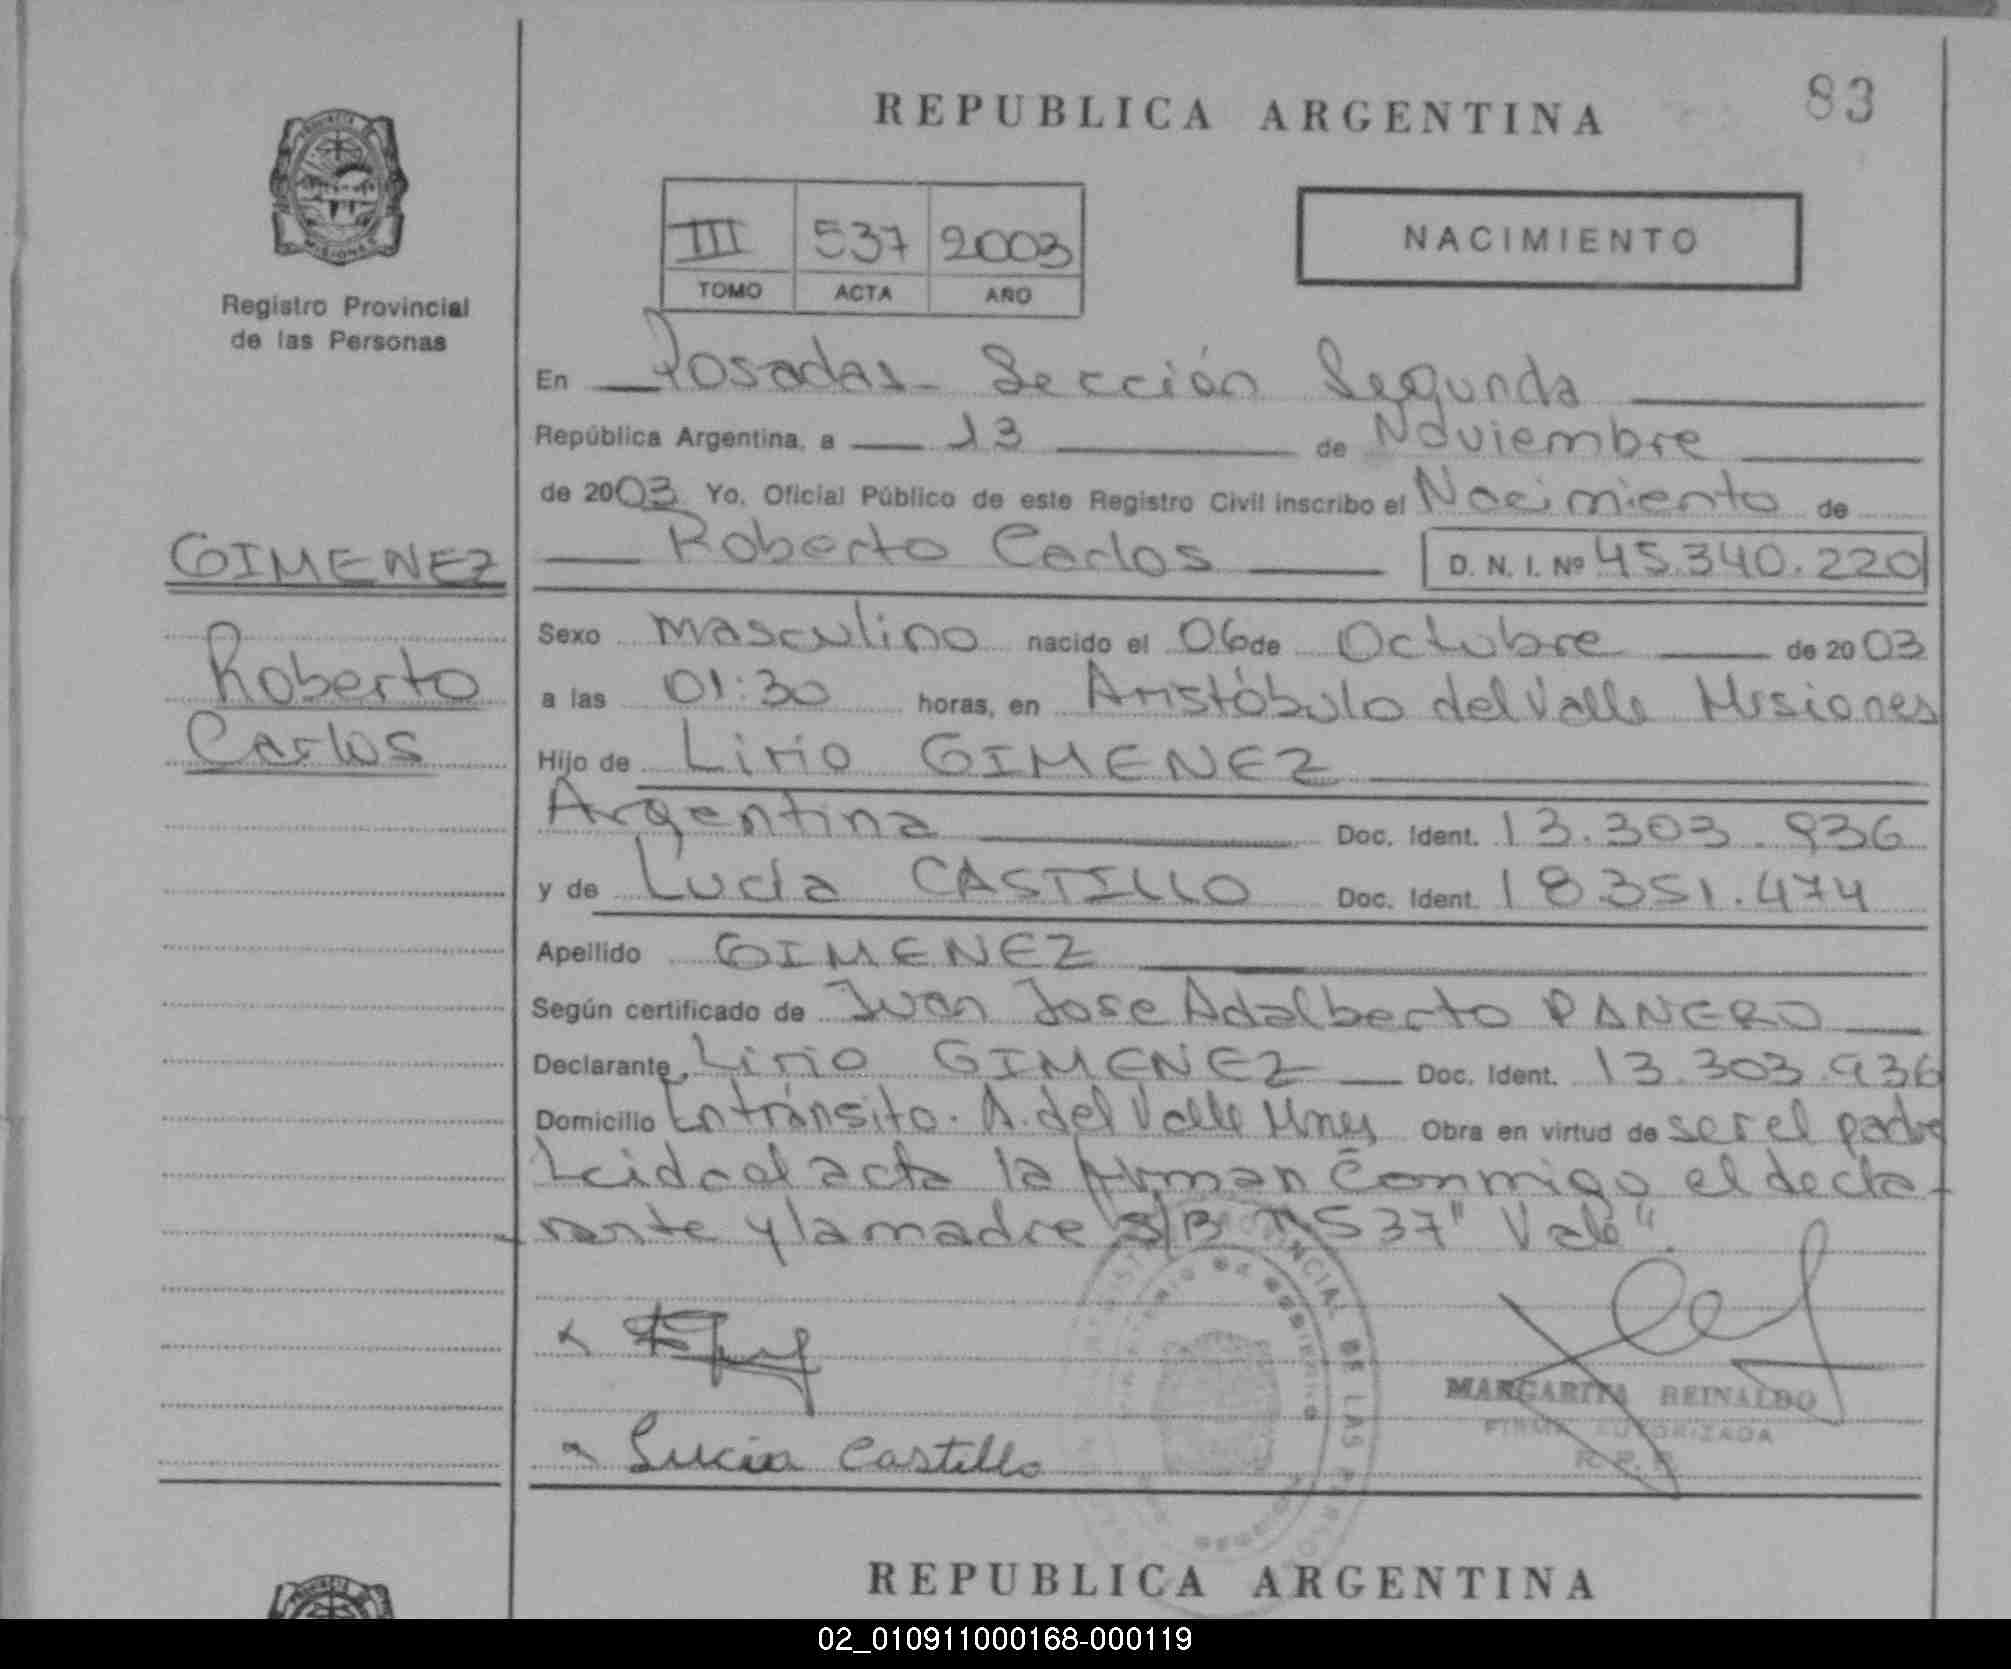 REPUBLICA ARGENTINA
83
PROVINCIA DE
MISIONES
Registro Provincial
de las Personas
III 537 2003
TOMO ACTA AÑO
NACIMIENTO
En Posadas - Sección Segunda
República Argentina, a 13 de Noviembre
de 2003 Yo, Oficial Público de este Registro Civil inscribo el Nacimiento de
Roberto Carlos D. N. I. Nº 45.340.220
GIMENEZ
Roberto
Carlos
Sexo masculino nacido el 06 de Octubre de 2003
a las 01:30 horas, en Aristóbulo del Valle Misiones
Hijo de Lirio GIMENEZ
Argentina Doc. Ident. 13.303.936
y de Lucia CASTILLO Doc. Ident. 18.351.474
Apellido GIMENEZ
Según certificado de Juan Jose Adalberto PANERO
Declarante Lirio GIMENEZ Doc. Ident. 13.303.936
Domicilio En tránsito. A. del Valle Mnes Obra en virtud de ser el padre
Leida el acta la firman conmigo el decla-
rante y la madre S/B n 537 "Vale".
Lucia Castillo
MARGARITA REINALDO
FIRMA AUTORIZADA
R. P. P.
REPUBLICA ARGENTINA
02_010911000168-000119